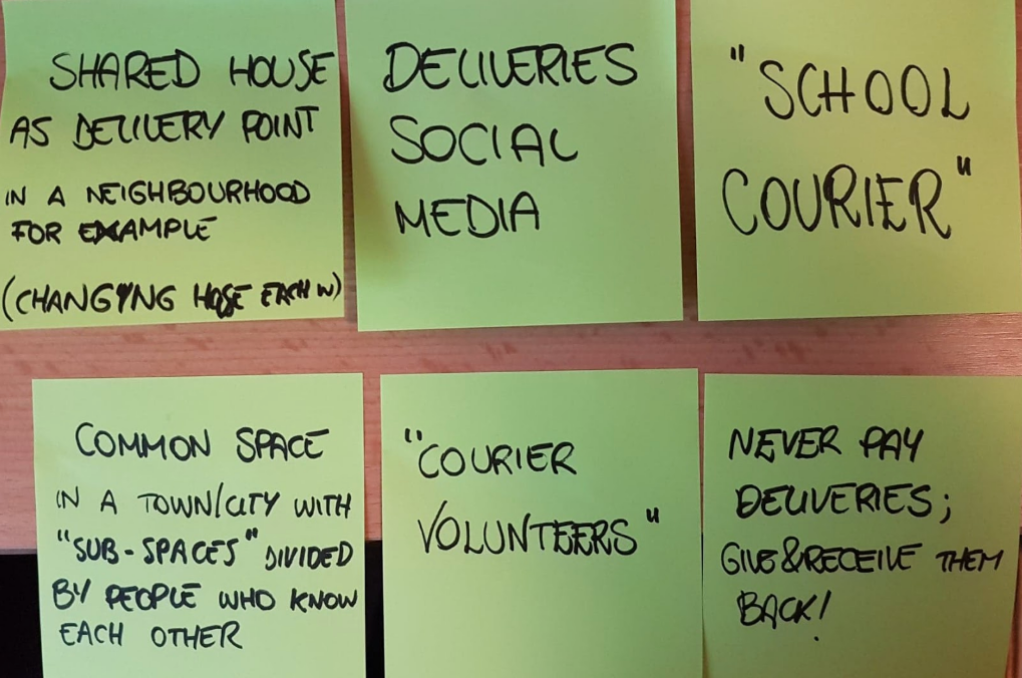 SHARED HOUSE
AS DELIVERY POINT
IN A NEIGHBOURHOOD
FOR EXAMPLE
(CHANGYNG HOSE EACH W)
DELIVERIES
SOCIAL
MEDIA
"SCHOOL
COURIER"
COMMON SPACE
IN A TOWN/CITY WITH
"SUB-SPACES" DIVIDED
BY PEOPLE WHO KNOW
EACH OTHER
"COURIER
VOLUNTEERS"
NEVER PAY
DELIVERIES;
GIVE&RECEIVE THEM
BACK!